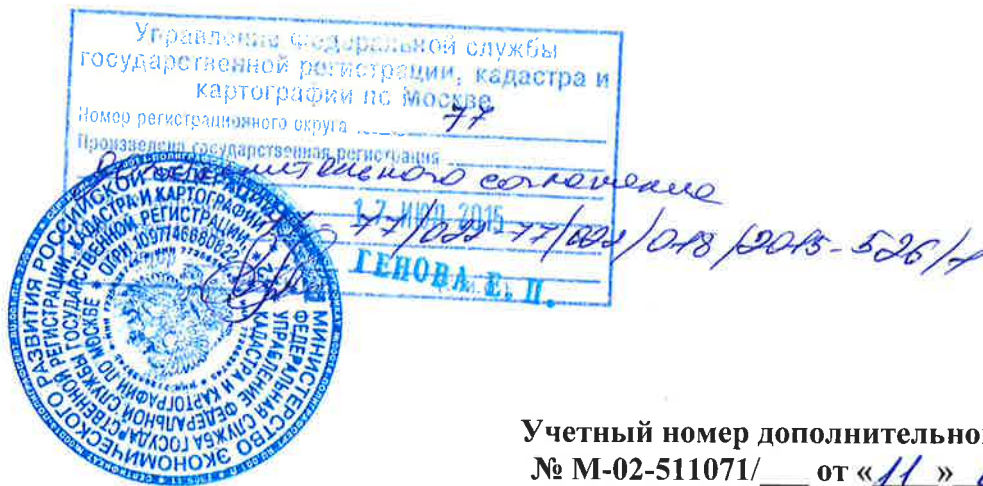 Управление Федеральной службы
государственной регистрации, кадастра и
картографии по Москве
Номер регистрационного округа 77
Произведена государственная регистрация
дополнительного соглашения
17 ИЮЛ 2015
77-77/022-77/022/018/2015-526/1
ГЕНОВА Е. П.
МИНИСТЕРСТВО ЭКОНОМИЧЕСКОГО РАЗВИТИЯ РОССИЙСКОЙ ФЕДЕРАЦИИ
ФЕДЕРАЛЬНАЯ СЛУЖБА ГОСУДАРСТВЕННОЙ РЕГИСТРАЦИИ, КАДАСТРА И КАРТОГРАФИИ
УПРАВЛЕНИЕ ФЕДЕРАЛЬНОЙ СЛУЖБЫ ГОСУДАРСТВЕННОЙ РЕГИСТРАЦИИ,
КАДАСТРА И КАРТОГРАФИИ ПО МОСКВЕ
Учетный номер дополнительно
№ М-02-511071/___ от «11»